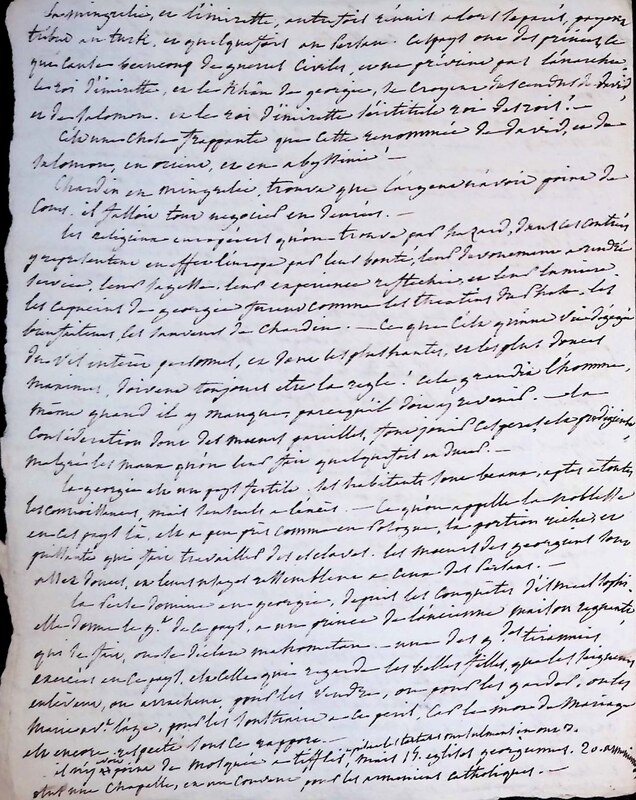 La mingrelie, et l'imirette, autrefois réunis alors séparés, payent
tribut au turk, et quelquefois au Persan. Ce pays a eu des princes, ce
que cause beaucoup de guerres civiles,
le roi d'imirette, et le Khan de georgie, se croyent descendus de david
et de Salomon. et le roi d'imirette s'intitule roi des rois! —
C'est une chose frappante que cette renommée de david, et de
Salomon, en orient, et en abyssinie! —
Chardin en mingrelie, trouva que l'argent n'avoit point de
cours. il falloit tout negocier en denrées. —
les religieux européens qu'on trouve par hazard, dans ces contrées
y représentent en effet l'europe par leur bonté, leur dévouement a rendre
service, leur sagesse, leur experience reflechie, et leur lumiere
les capucins de georgie furent comme les theatins du Phase, les
bienfaiteurs, les sauveurs de Chardin. — Ce que c'est qu'une vie dégagée
du vil intérêt personnel, et dont les plus hautes, et les plus douces
maximes, doivent toujours etre la regle! cela grandit l'homme,
même quand il y manque, parcequ'il doit y revenir. — la
considération dont des moeurs pareilles, font jouir ces peres
malgré les maux qu'on leur fait quelquefois endurer. —
la georgie est un pays fertile. les habitants sont beaux, aptes a toutes
les connoissances, mais — Ce qu'on appelle la noblesse
en ces pays là, est a peu près comme en Pologne, la portion riche, et
puissante qui fait travailler des esclaves. les moeurs des georgiens sont
assez douces, et leurs usages ressemblent a ceux des Persans. —
la Perse domine en georgie, depuis les conquêtes d'ismael sophi
elle donne le g.t de ce pays, a un prince de l'ancienne maison regnante
qui se fait, ou se déclare mahometan. — une des g.des tirannies
exercées en ce pays, est celle qui regarde les belles filles, que les seigneurs
enlevent, ou arrachent, pour les vendre, ou pour les garder, on les
marie en bas age, pour les soustraire a ce peril, car le nom de mariage
est encore respecté sous ce rapport. —
il n'y a point de mosquée a tiflis, mais 14 eglises georgiennes. 20
une chapelle, et un couvent pour les armeniens catholiques. —